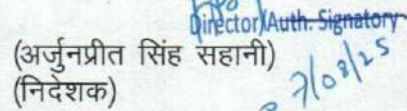 Director/Auth. Signatory
(अर्जुनप्रीत सिंह सहानी)
(निदेशक)
7/08/25